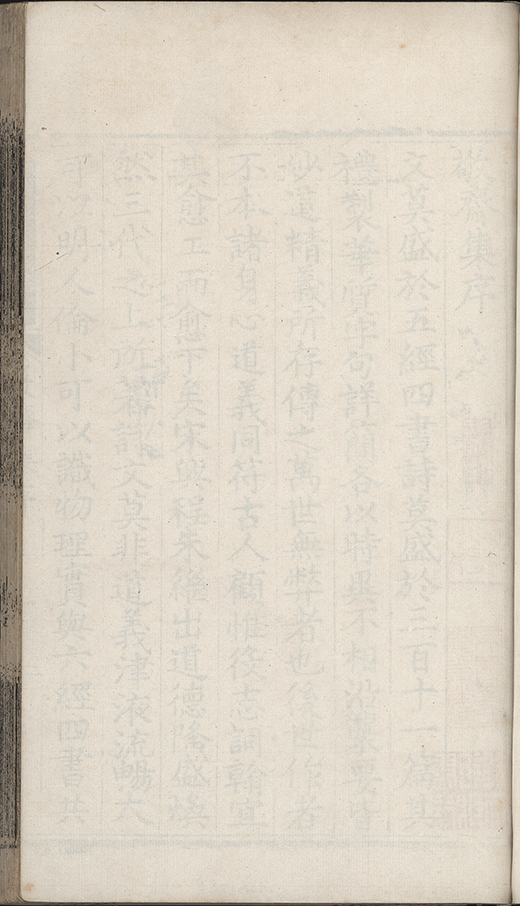 敬齋集序
文莫盛於五經四書詩莫盛於三百十一篇其
禮製華質字句詳簡各以時異不相沿襲要皆
妙道精義所存傳之萬世無弊者也後世作者
不本諸身心道義同符古人顧惟役志詞翰宜
其愈工而愈下矣宋興程朱繼出道德隆盛煥
然三代之上所著詩文莫非道義津液流暢大
可以明人倫小可以識物理實與六經四書共